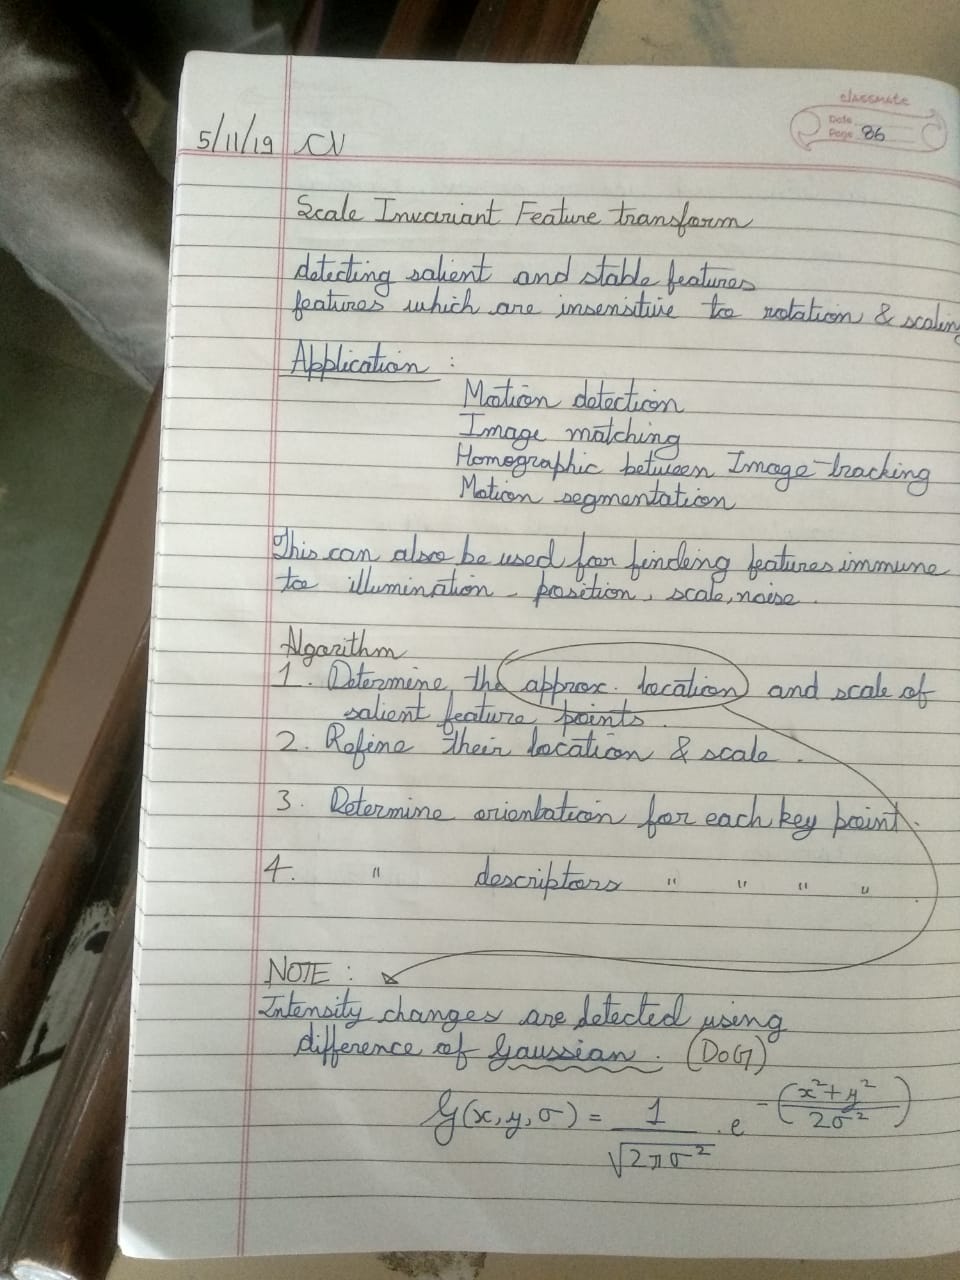 classmate
Date
Page 86
5/11/19 CV
Scale Invariant Feature transform
detecting salient and stable features
features which are insensitive to rotation & scaling
Application :
Motion detection
Image matching
Homographic between Image tracking
Motion segmentation
This can also be used for finding features immune
to illumination, position, scale, noise.
Algorithm
1. Determine the approx. location and scale of
salient feature points.
2. Refine their location & scale.
3. Determine orientation for each key point.
4. " descriptors " " " "
NOTE :
Intensity changes are detected using
difference of Gaussian. (DoG)
G(x, y, σ) = 1/√2πσ² . e^-((x²+y²)/2σ²)